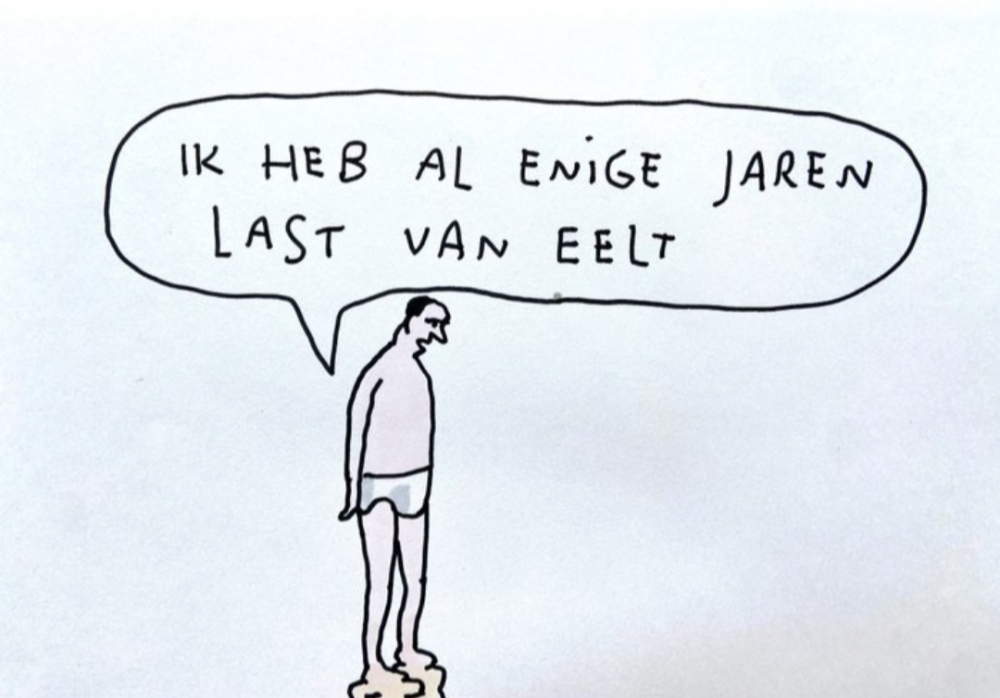 IK HEB AL ENIGE JAREN
LAST VAN EELT